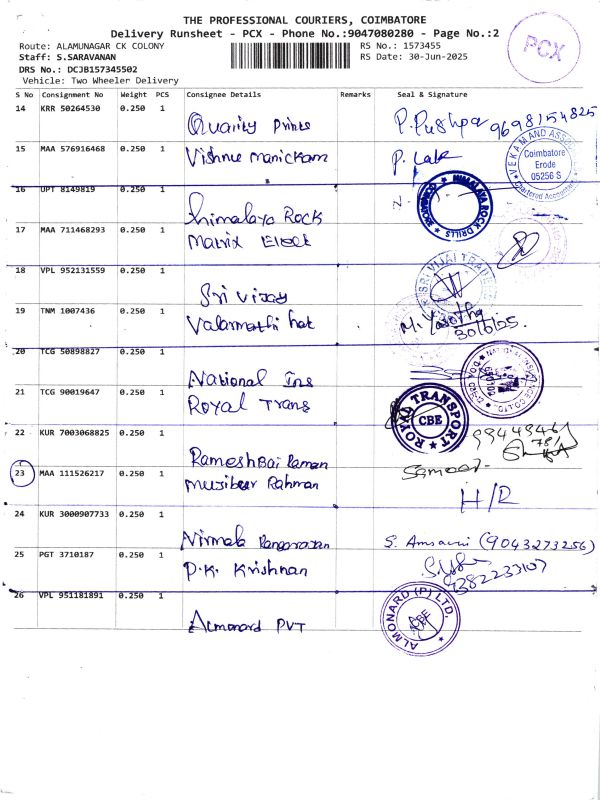 THE PROFESSIONAL COURIERS, COIMBATORE
Delivery Runsheet - PCX - Phone No.:9047080280 - Page No.:2
PCX
Route: ALAMUNAGAR CK COLONY RS No.: 1573455
Staff: S.SARAVANAN RS Date: 30-Jun-2025
DRS No.: DCJB157345502
Vehicle: Two Wheeler Delivery
S No Consignment No Weight PCS Consignee Details Remarks Seal & Signature
14 KRR 50264530 0.250 1
Quarity Prints P. Pushpa 9698154825
15 MAA 576916468 0.250 1
Vishnu Manickam P. Lak
VEKAM AND ASSO
Coimbatore
Erode
05256 S
Chartered Accountants
16 UPT 8149819 0.250 1
Himalaya Rock
HIMALAYA ROCK DRILLS
17 MAA 711468293 0.250 1
Matrix Elect
18 VPL 952131559 0.250 1
Sri Vijay
SRI VIJAI TRAD
19 TNM 1007436 0.250 1
Valarmathi hat M. Yasotha
30/6/25.
20 TCG 50898827 0.250 1
National Ins
21 TCG 90019647 0.250 1
Royal Trans
ROYAL TRANSPORT
CBE
22 KUR 7003068825 0.250 1
Rameshbai Raman
23 MAA 111526217 0.250 1
Mujibur Rahman
H/R
24 KUR 3000907733 0.250 1
Nirmala Rangarajan (9043273256)
25 PGT 3710187 0.250 1
P.K. Krishnan 9382233107
26 VPL 951181891 0.250 1
Almonard PVT
ALMONARD (P) LTD.
CBE